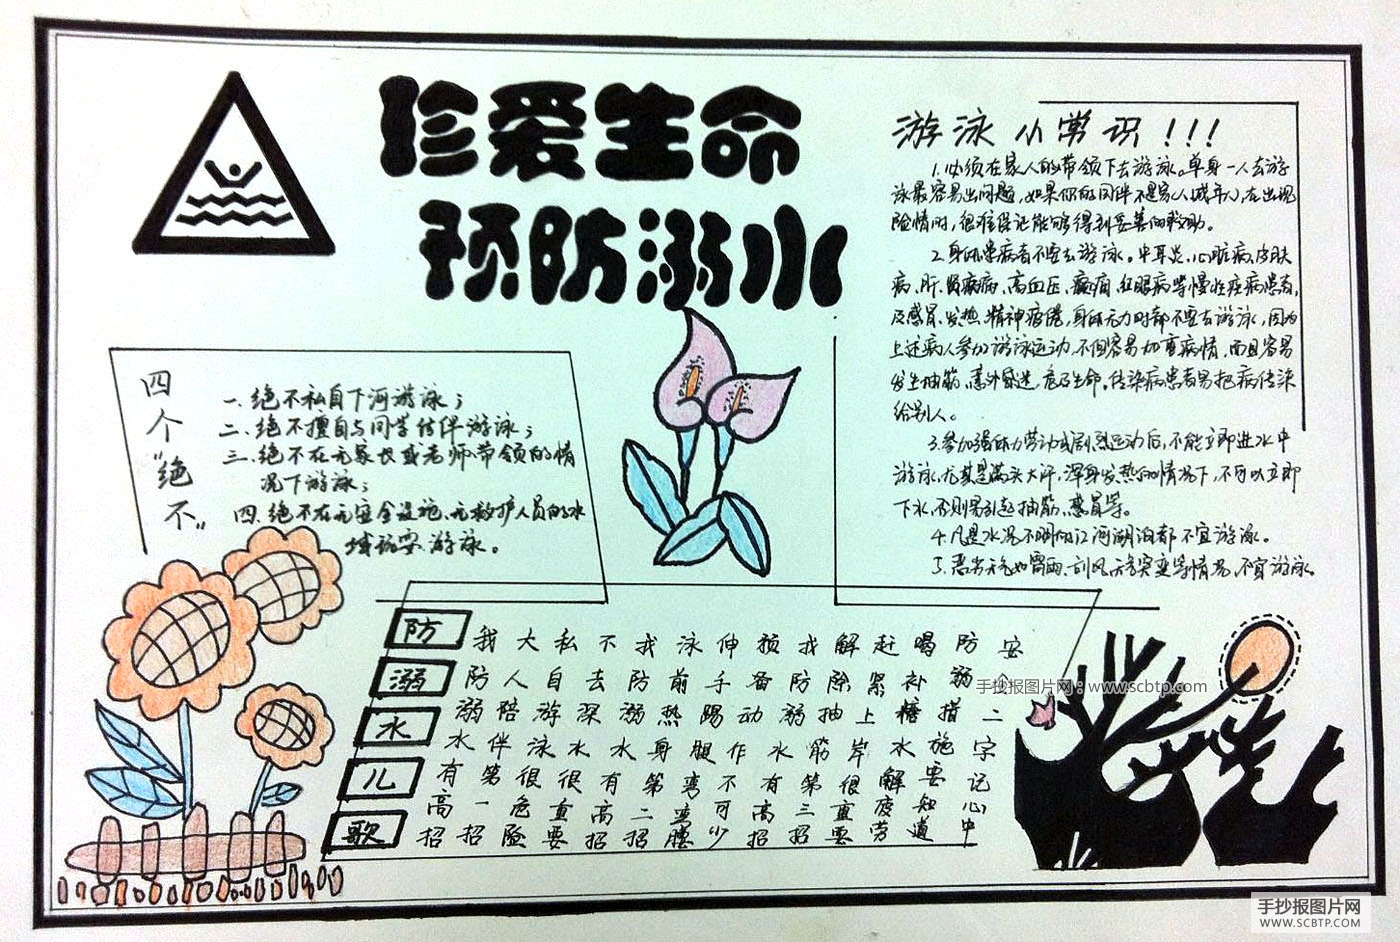 珍爱生命
预防溺水
四个“绝不”
一、绝不私自下河游泳；
二、绝不擅自与同学结伴游泳；
三、绝不在无家长或老师带领的情
况下游泳；
四、绝不在无安全设施、无救护人员的水
域玩耍游泳。
游泳小常识！！！
1.必须在家人的带领下去游泳。单身一人去游
泳最容易出问题，如果你的同伴不是家人(成年人)，在出现
险情时，很难保证能够得到妥善的救助。
2.身体患病者不要去游泳。中耳炎、心脏病、皮肤
病、肝、肾疾病、高血压、癫痫、红眼病等慢性疾病患者，
及感冒、发热、精神疲倦，身体无力时都不要去游泳，因为
上述病人参加游泳运动，不但容易加重病情，而且容易
发生抽筋、意外昏迷，危及生命，传染病患者易把病传染
给别人。
3.参加强体力劳动或剧烈运动后，不能立即进水中
游泳，尤其是满头大汗，浑身发热的情况下，不可以立即
下水，否则易引起抽筋、感冒等。
4.凡是水况不明的江河湖泊都不宜游泳。
5.恶劣天气如雷雨、刮风、天气突变等情况，不宜游泳。
防溺水儿歌
我防溺水有高招
大人陪伴第一招
私自游泳很危险
不去深水很重要
找防溺水有高招
泳前热身第二招
伸手踢腿弯弯腰
预备动作不可少
找防溺水有高招
解除抽筋第三招
赶紧上岸很重要
喝补糖水解疲劳
防溺措施要知道
安全二字记心中
手抄报图片网：www.scbtp.com
手抄报图片网
WWW.SCBTP.COM